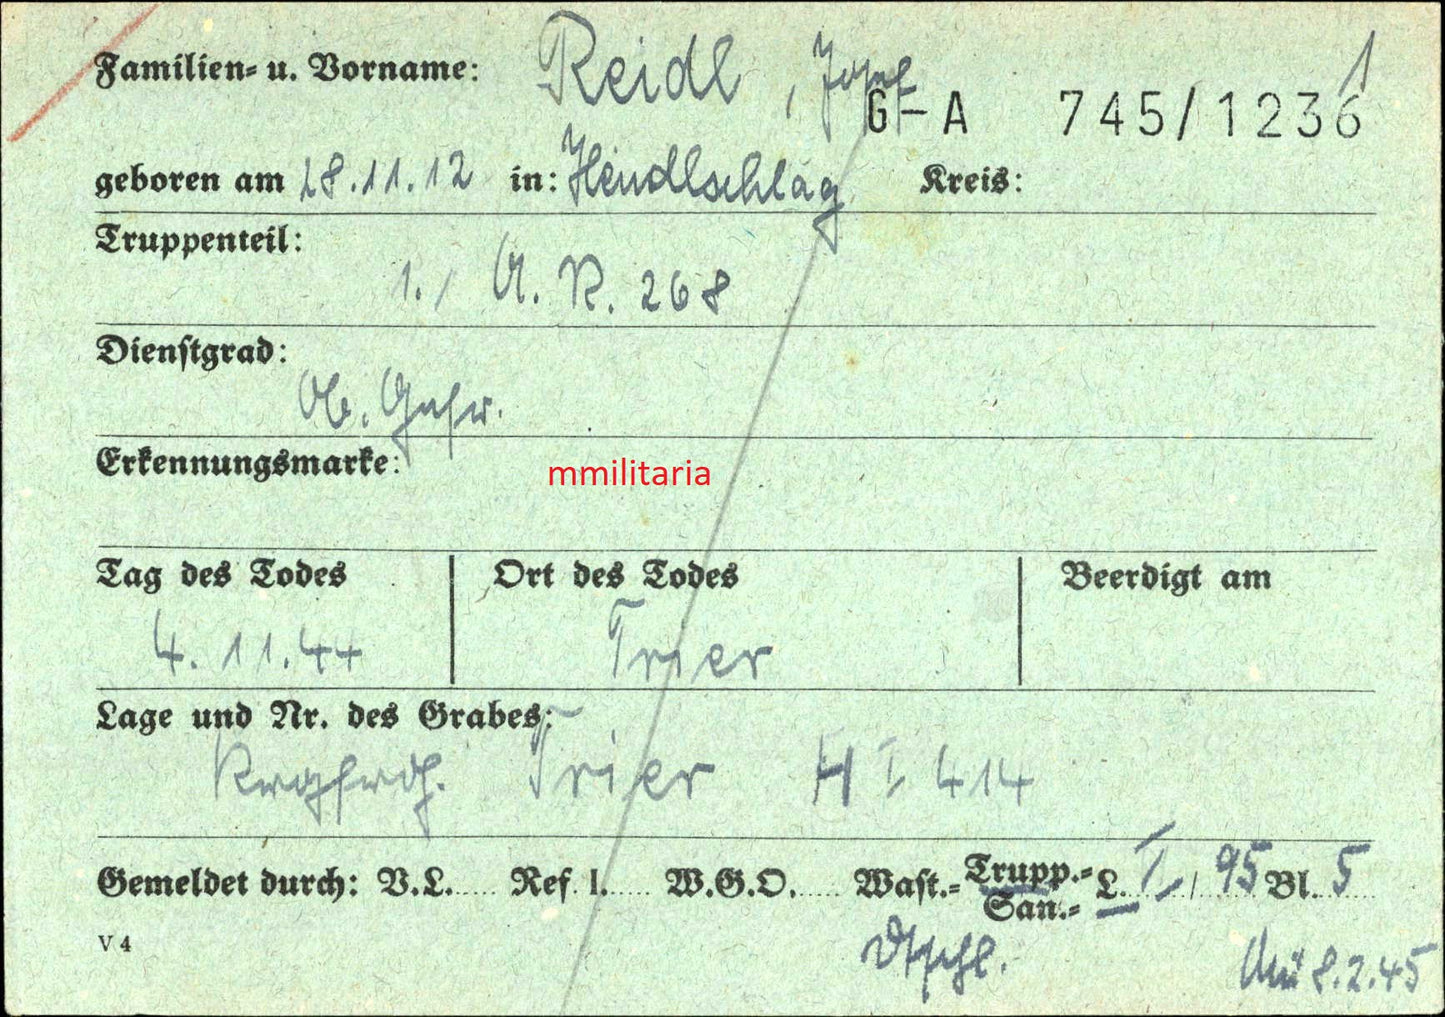 Familien- u. Vorname: Reidl, Josef 1
G-A 745/1236
geboren am 28.11.12 in: Hendlschlag Kreis:
Truppenteil:
1./ A. R. 268
Dienstgrad:
Ob. Gefr.
Erkennungsmarke:
mmilitaria
Tag des Todes Ort des Todes Beerdigt am
4. 11. 44 Trier
Lage und Nr. des Grabes:
Trier H I 414
Gemeldet durch: V.L. Ref. I. W.G.O. Wast.- Trupp.- L. I / 95 Bl. 5
San.-
V 4
8.2.45